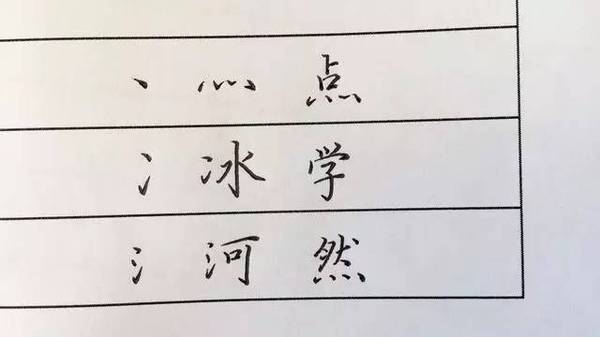 丶 灬 点
冫 冰 学
氵 河 然